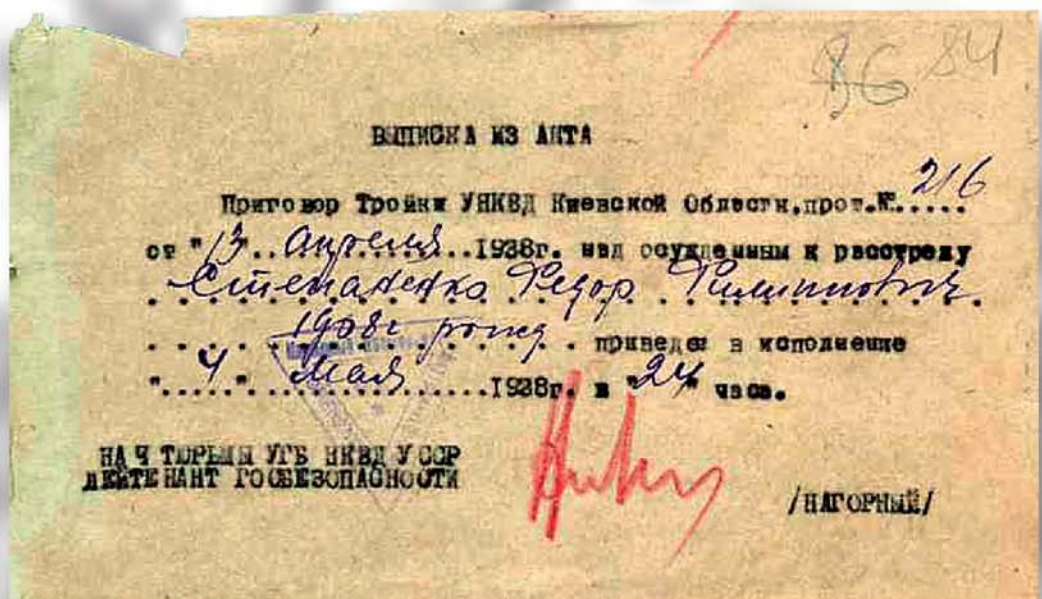 86 84
ВЫПИСКА ИЗ АКТА
216
Приговор Тройки УНКВД Киевской Области, прот.№.....
от "13".. апреля...1938г. над осужденным к расстрелу
Степаненко Федор Филиппович
1908г рожд. приведен в исполнение
"...4".. Мая.........1938г. в "24" часа.
НАЧ ТЮРЬМЫ УГБ НКВД УССР
ЛЕЙТЕНАНТ ГОСБЕЗОПАСНОСТИ
/НАГОРНЫЙ/